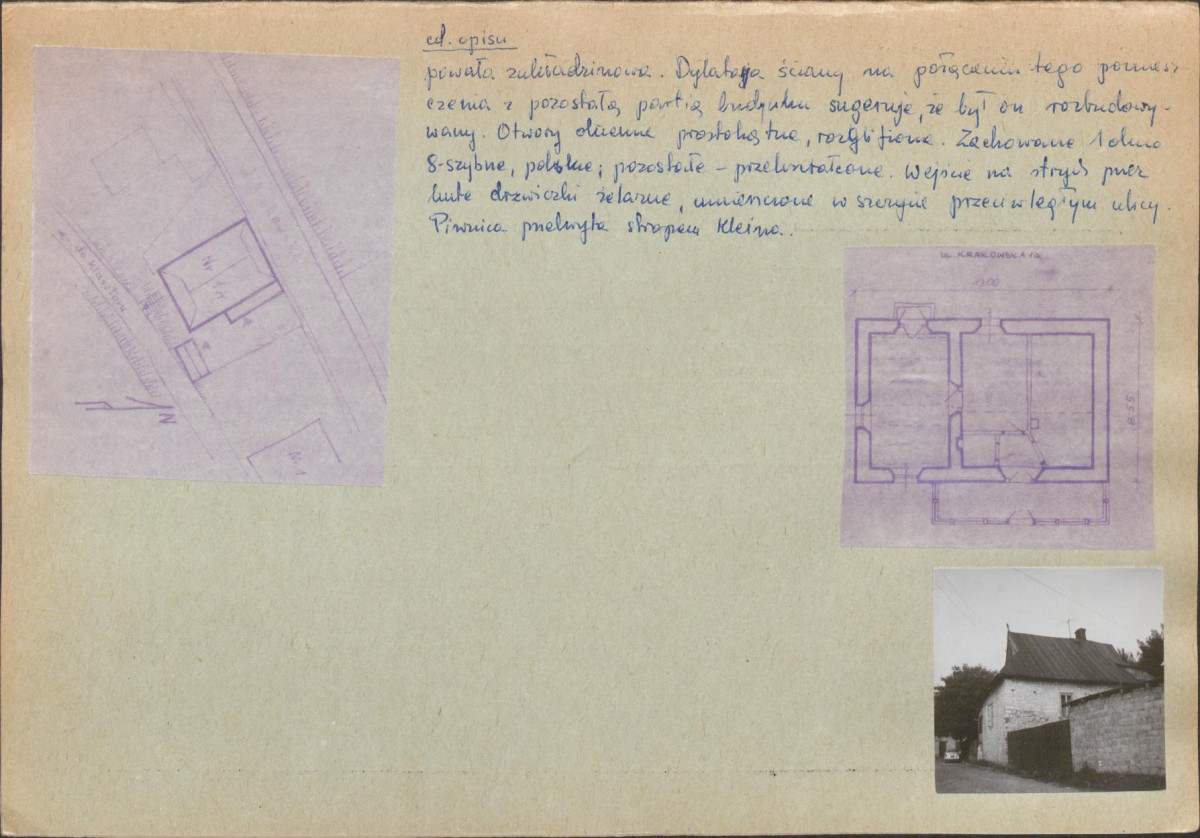 cd. opisu
powała zakładzinowa. Dylatacja ściany na połączeniu tego pomiesz-
czenia z pozostałą partią budynku sugeruje, że był on rozbudowy-
wany. Otwory okienne prostokątne, rozglifione. Zachowane 1 okno
8-szybne, polskie; pozostałe – przekształcone. Wejście na strych przez
kute drzwiczki żelazne, umieszczone w szczycie przeciwległym ulicy.
Piwnica przekryta stropem Kleina.
ul. Klasztorna
Nr 1a
N
Nr 1
UL. KRAKOWSKA 1a
1300
8.55